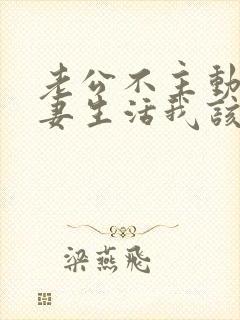 老公不主动
妻生活我该
梁燕飛